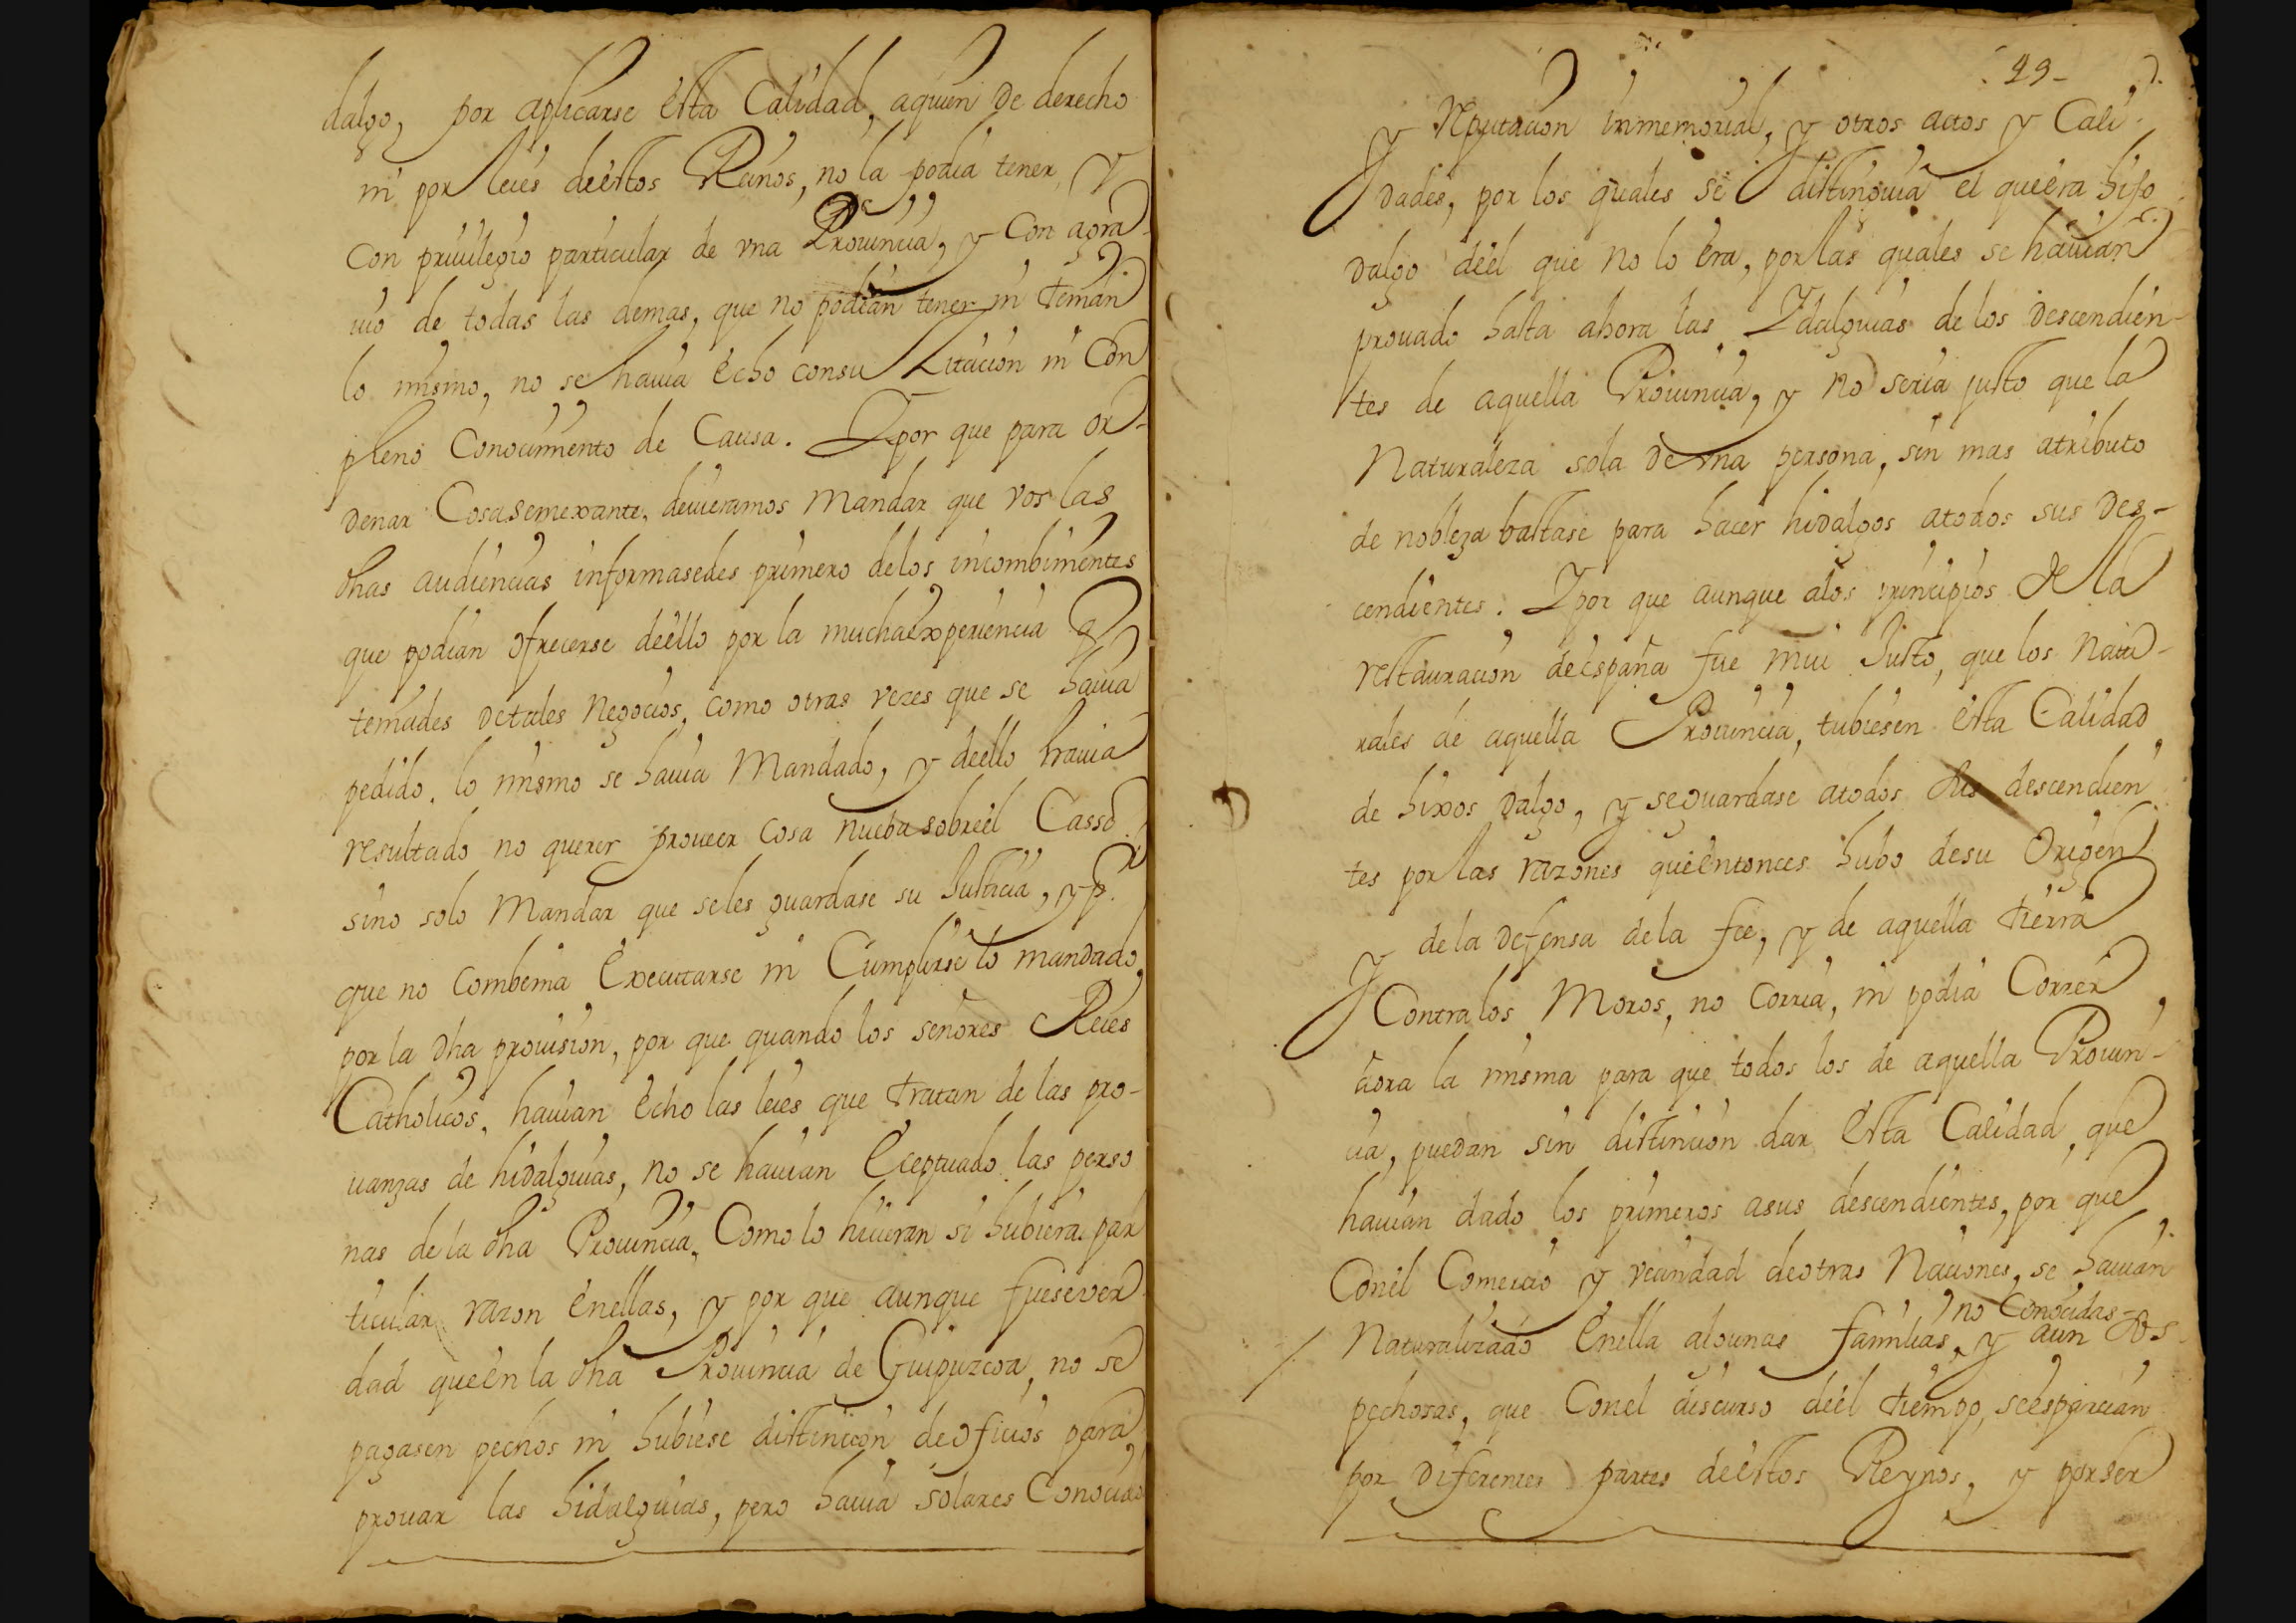 dalgo, por aplicarse esta Calidad, aquien de derecho
ni por leies deestos Reinos, no la podia tener, y
Con priuilegio particular de vna Prouincia, y Con agra-
uio de todas las demas, que no podian tener ni tenian
lo mismo, no se hauia echo consu Litacion ni Con
pleno Conocimiento de Causa. Y por que para or-
denar Cosa semexante, deuieramos Mandar que vos las
dhas audiencias informasedes primero delos incombinientes
que podian ofrecerse deello por la mucha experiencia q
teniades detales Negocios, como otras vezes que se hauia
pedido, lo mismo se hauia Mandado, y deello hauia
resultado no querer proueer cosa nueba sobreel Casso
sino solo Mandar que seles guardase su Justicia, y p.r
que no combenia Executarse ni Cumplirse lo mandado
por la dha prouision, por que quando los señores Reies
Catholicos, hauian echo las leies que tratan de las pro-
uanzas de hidalguias, no se hauian Eceptuado las perso
nas de la dha Prouincia, Como lo hicieran si hubiera par
ticular razon Enellas, y por que aunque fuese ver
dad queen la dha Prouincia de Guipuzcoa, no se
pagasen pechos ni hubiese distincion de oficios para
prouar las hidalguias, pero hauia solares Conocidos
29-
y Reputacion inmemorial, y otros actos y Cali-
dades, por los quales se distinguia el que era hijo
dalgo deel que no lo era, por las quales se hauian
prouado hasta ahora las Ydalguias de los descendien-
tes de aquella Prouincia, y no seria justo que la
Naturaleza sola de vna persona, sin mas atributo
de nobleza bastase para hacer hidalgos atodos sus des-
cendientes. Y por que aunque alos principios de la
restauracion deespaña fue mui Justo, que los Natu-
rales de aquella Prouincia, tubiesen esta Calidad
de hixos dalgo, y seguardase atodos sus descendien
tes por las razones queentonces hubo desu Origen
y dela defensa dela fee, y de aquella tierra
Contra los Moros, no Corria, ni podia Correr
aora la misma para que todos los de aquella Prouin-
cia, puedan sin distincion dar esta Calidad, que
hauian dado los primeros asus descendientes, por que
Conel Comercio y vecindad deotras Naciones, se hauian
no Conocidas-
Naturalizado Enella algunas familias, y aun sos-
pechosas, que Conel discurso deel tiempo, seesparcian
por diferentes partes deestos Reynos, y por ser